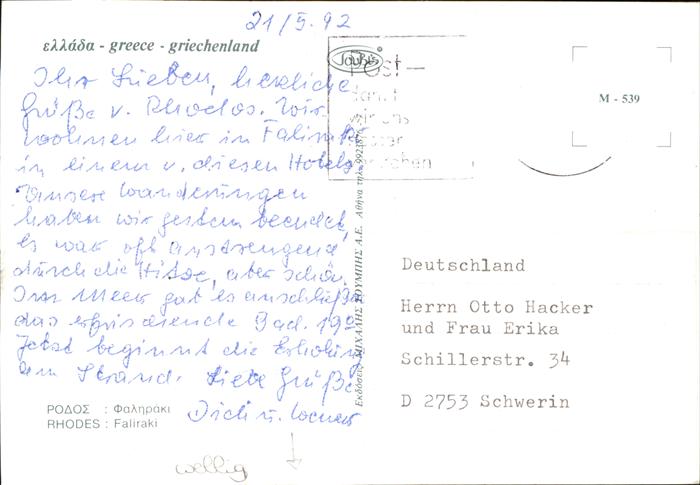 21/5.92
ελλάδα - greece - griechenland
Ihr Lieben, herzliche
Grüße v. Rhodos. Wir
wohnen hier in Faliraki
in einem v. diesen Hotels
Unsere Wanderungen
haben wir gestern beendet,
es war oft anstrengend
durch die Hitze, aber schön.
Im Meer gab es anschließend
das erfrischende Bad. 19°
Jetzt beginnt die Erholung
am Strand. Liebe Grüße
u. Werner
ΡΟΔΟΣ : Φαληράκι
RHODES : Faliraki
wellig
Post-
M - 539
Εκδόσεις ΜΙΧΑΛΗΣ ΤΟΥΜΠΗΣ Α.Ε. Αθήνα τηλ.
Deutschland
Herrn Otto Hacker
und Frau Erika
Schillerstr. 34
D 2753 Schwerin